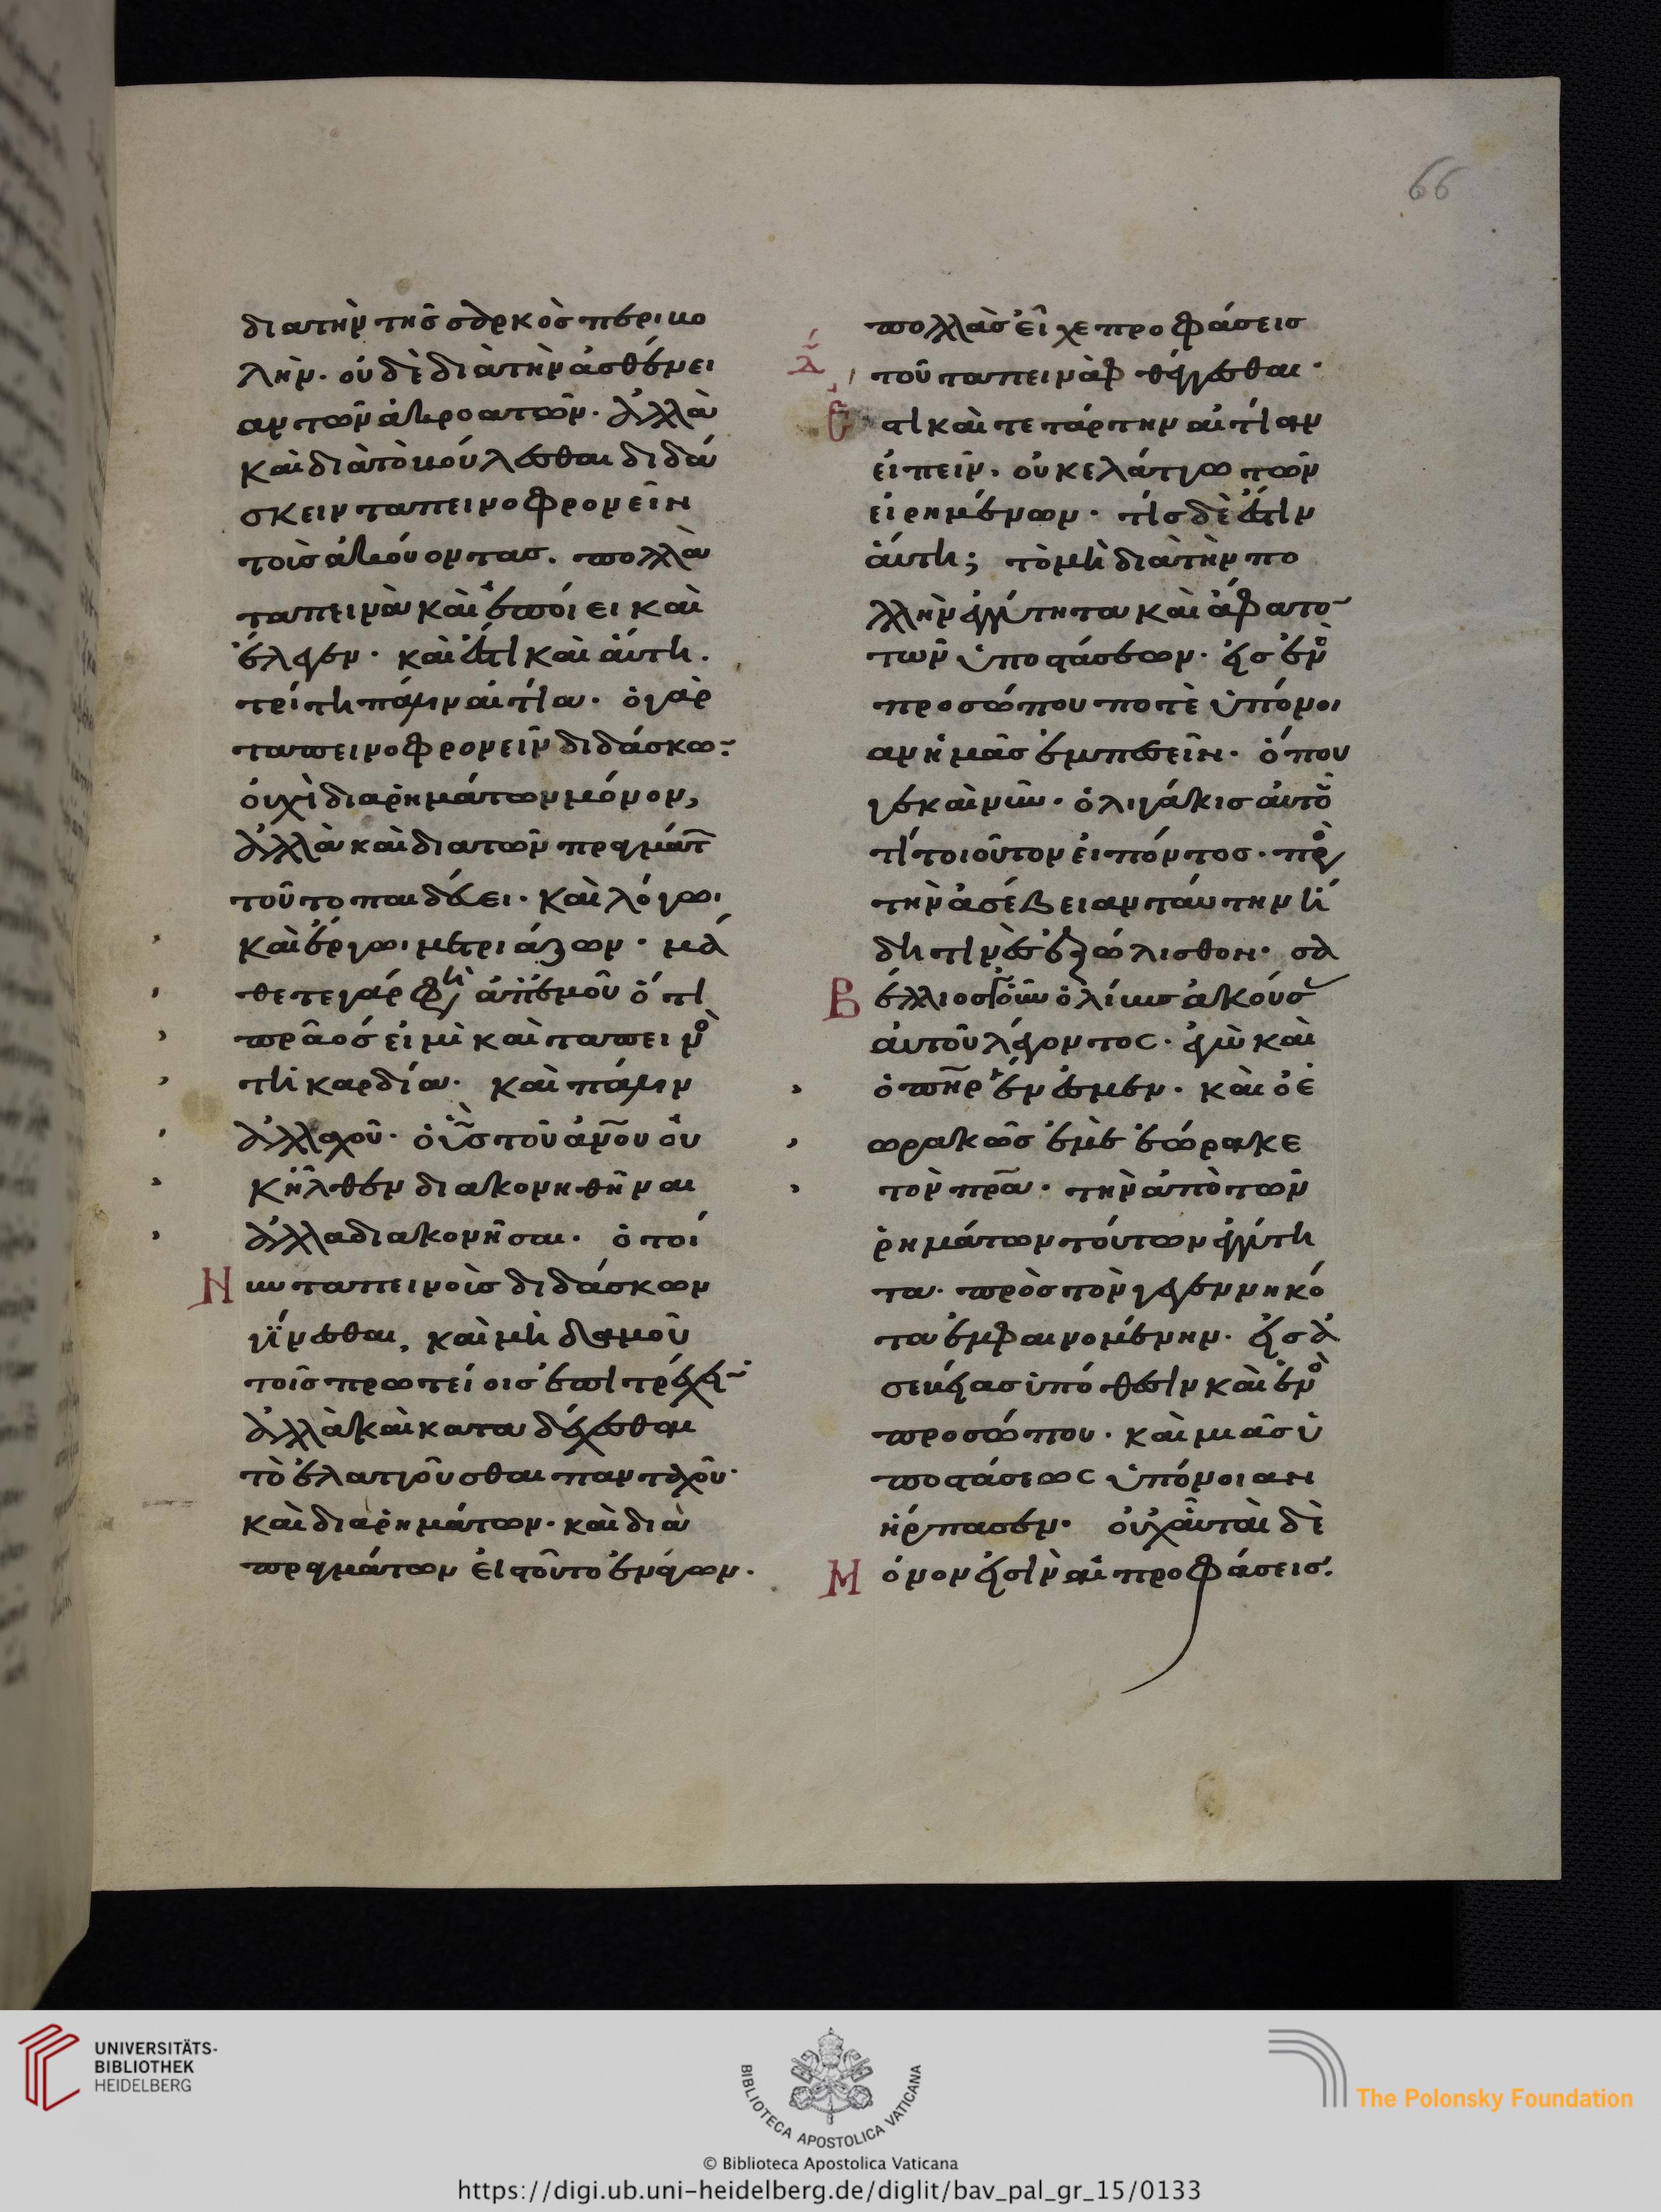 66
διατὴν τῆς σαρκὸς περιβο
λὴν· οὐδὲ διὰ τὴν ἀσθένει
αν τῶν ἀκροατῶν· ἀλλὰ
καὶ διὰ τὸ βούλεσθαι διδά
σκειν ταπεινοφρονεῖν
τοὺς ἀκούοντας. πολλὰ
ταπεινὰ καὶ ἐποίει καὶ
ἔλεγεν· καὶ ἔστι καὶ αὕτη
τρίτη πάλιν αἰτία· ὁ γὰρ
ταπεινοφρονεῖν διδάσκων
οὐχὶ διαρημάτων μόνον,
ἀλλὰ καὶ διατῶν πραγμάτ
τοῦτο παιδεύει· καὶ λόγωι
καὶ ἔργωι μετριάζων· μά
θετε γάρ φη ἀπ ἐμοῦ ὅτι
πρᾶος εἰμὶ καὶ ταπεινὸ
τῆ καρδία· καὶ πάλιν
ἀλλαχοῦ· ὁ υἱς τοῦ ἀνου οὐ
κ ἦλθεν διακονηθῆναι
ἀλλα διακονῆσαι· ὁ τοί
Νυν ταπεινοὺς διδάσκων
γίνεσθαι, καὶ μὴ δαμοῦ
τοῖς πρωτείοις ἐπιτρέχει
ἀλλὰ καὶ καταδέχεσθαι
τὸ ἐλαττοῦσθαι πανταχοῦ·
καὶ διαρημάτων· καὶ διὰ
πραγμάτων εἰς τοῦτο ἐνάγων·
πολλὰς εἶχε προφάσεις
τοῦ ταπεινὰ φθέγγεσθαι·
Ἔστι καὶ τετάρτην αἰτίαν
εἰπεῖν· οὐκ ελάττω τῶν
εἰρημένων· τίς δὲ ἐστὶν
αὕτη; τὸ μὴ διὰ τὴν πο
λλὴν ἐγγύτητα καὶ ἄφατο
τῶν ὑποστάσεων· εἰς ἑνὸ
προσώπου ποτὲ ὑπόνοι
αν ἡμᾶς ἐμπεσεῖν· ὅπου
γε καὶ νῦν· ὀλιγάκις αὐτοῦ
τί τοιοῦτον εἰπόντος· πρὸ
τὴν ἀσέβειαν ταύτην ἤ
δη τινὲς ἐξώλισθον· σα
Βέλλιος γοῦν ὁ λίβυς ἀκούσ
αὐτοῦ λέγοντος· ἐγὼ καὶ
ὁ πηρ ἕν ἐσμεν· καὶ ὁ ἑ
ωρακῶς ἐμὲ ἑώρακε
τὸν πρα· τὴν ἀπὸ τῶν
ῥημάτων τούτων ἐγγύτη
τα· πρὸς τὸν γεγεννηκό
τα ἐμφαινομένην· εἰς ἀ
σεβείας ὑπόθεσιν καὶ ἑνὸ
προσώπου· καὶ μιᾶς ὑ
ποστάσεως ὑπόνοιαν
ἥρπασεν· οὐχ αὗται δὲ
Μόνον εἰσὶν αἱ προφάσεις·
UNIVERSITÄTS-
BIBLIOTHEK
HEIDELBERG
BIBLIOTECA APOSTOLICA VATICANA
The Polonsky Foundation
© Biblioteca Apostolica Vaticana
https://digi.ub.uni-heidelberg.de/diglit/bav_pal_gr_15/0133